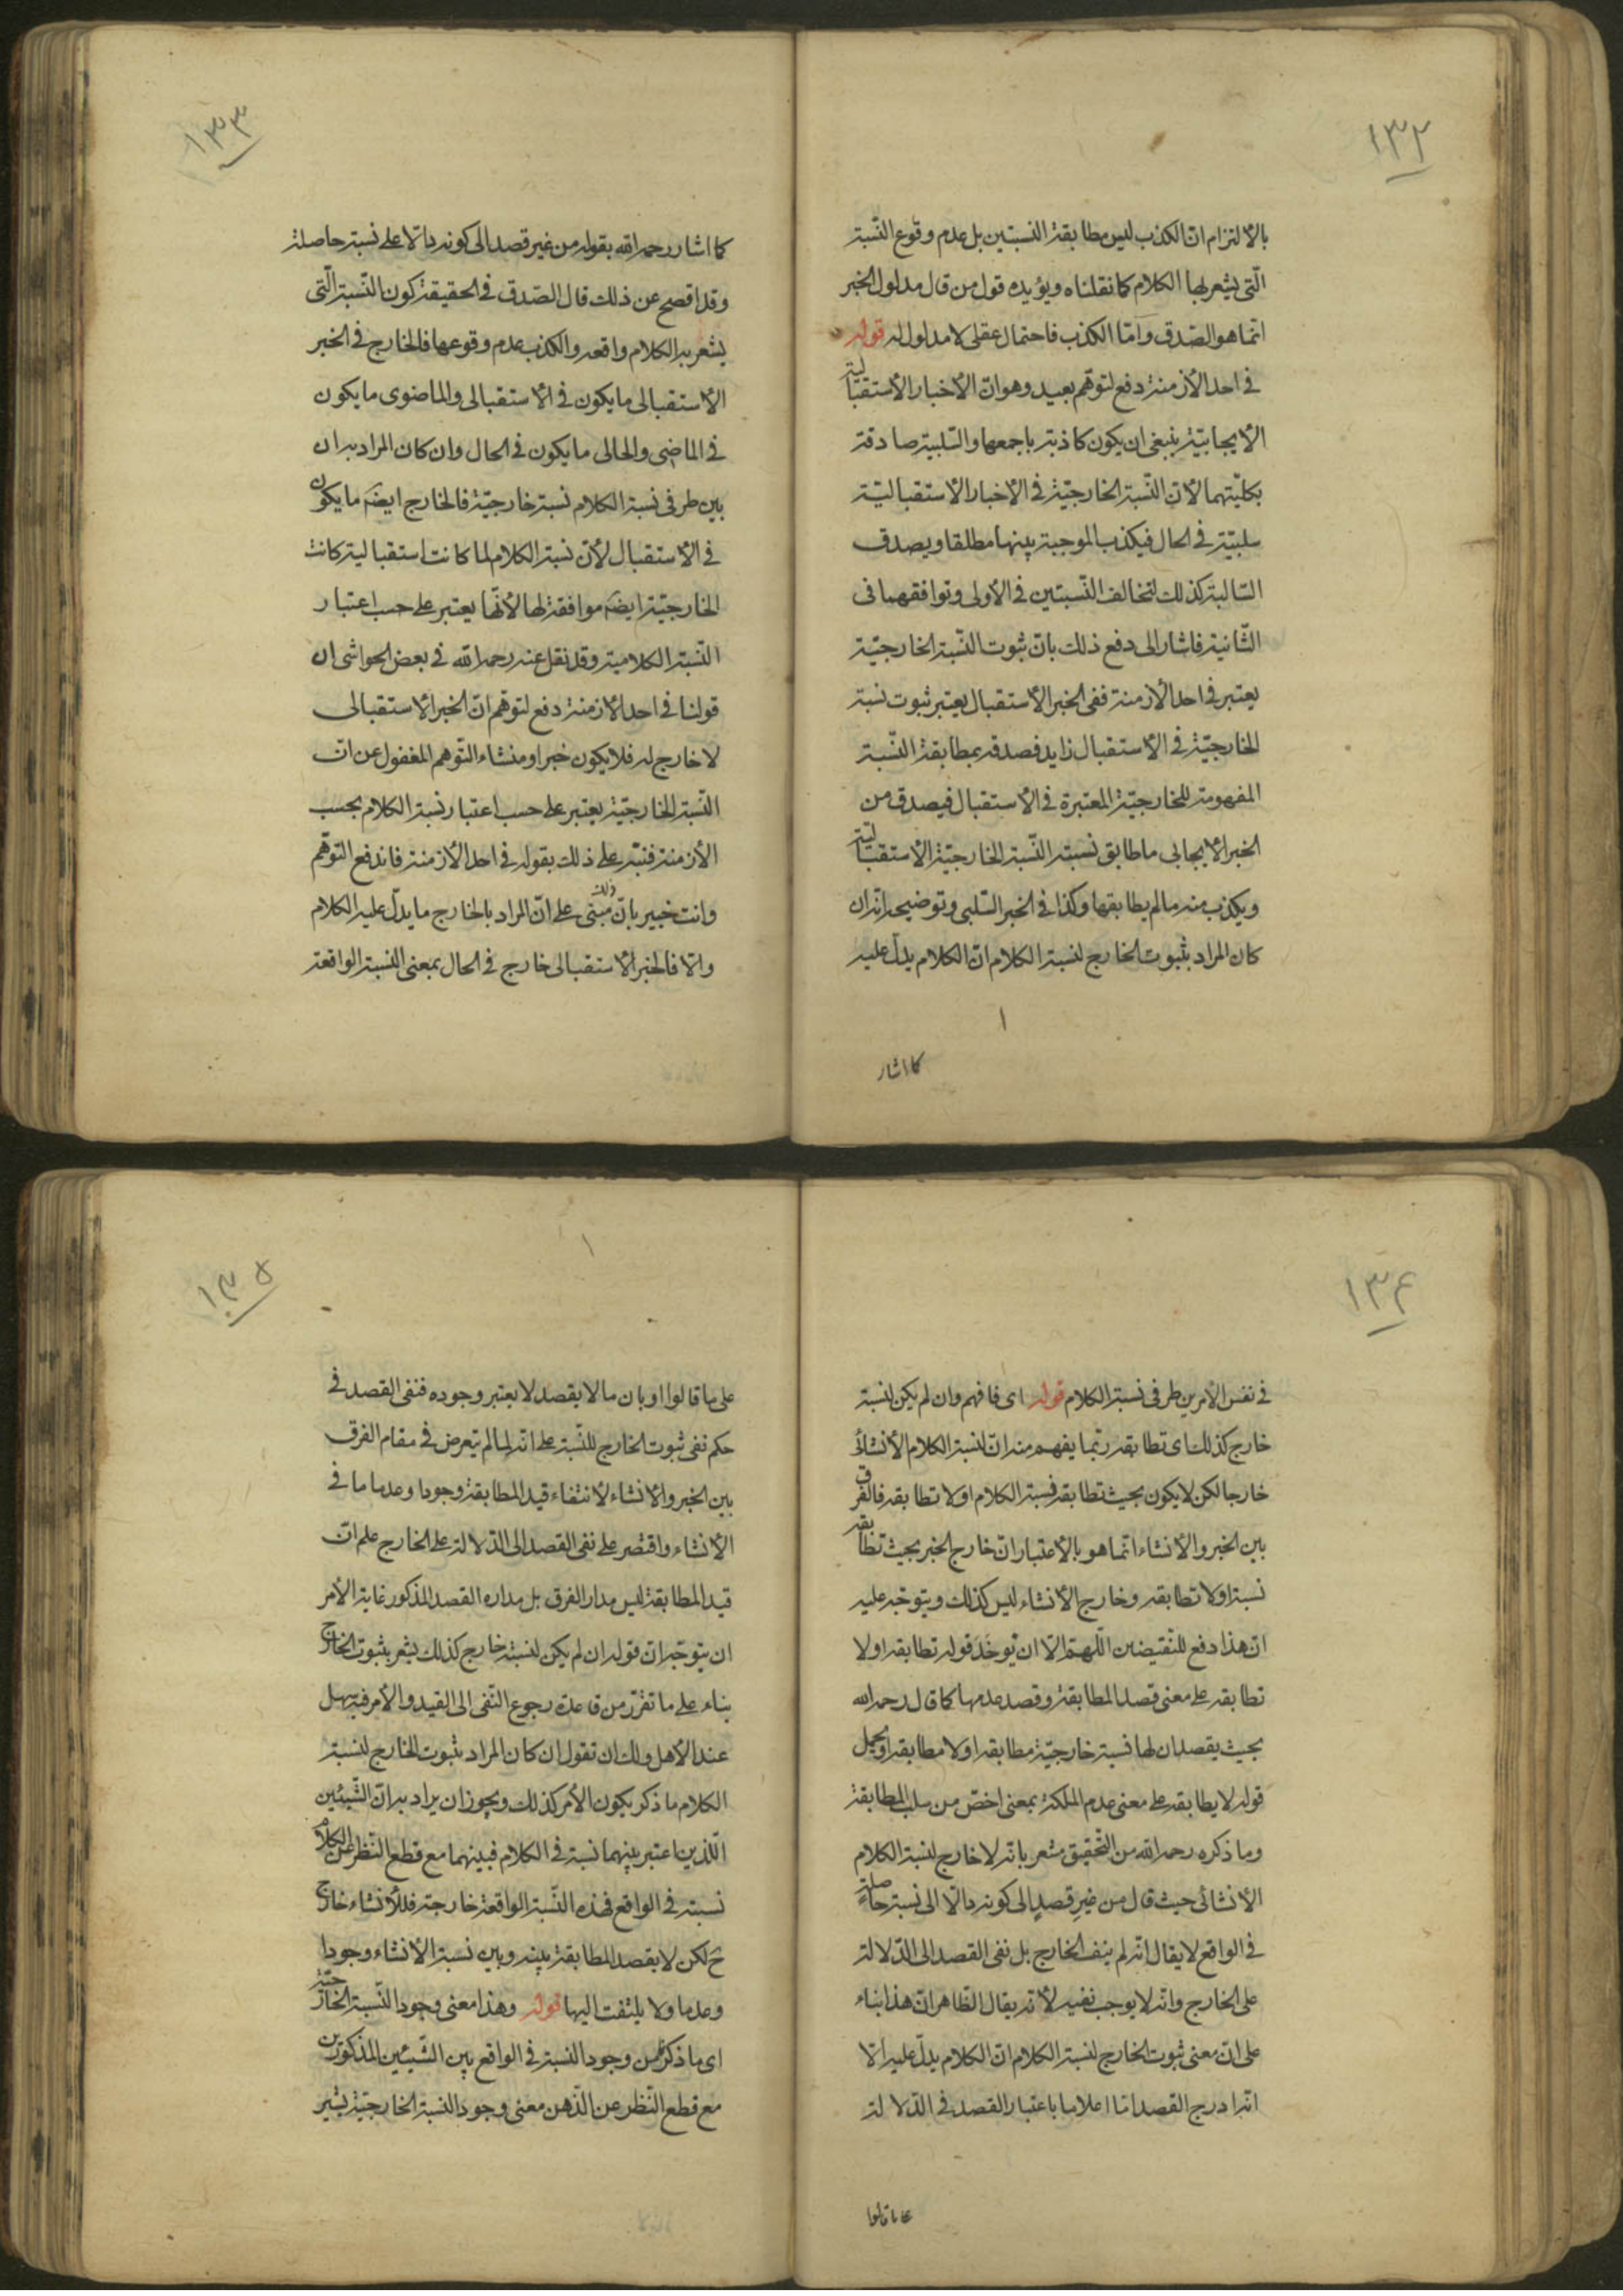 ١٣٢
بالالتزام انّ الكذب ليس مطابقة النسبتين بل عدم وقوع النّسبة
الّتى يشعر بها الكلام كما نقلناه ويؤيده قول من قال مدلول الخبر
انّما هو الصّدق وامّا الكذب فاحتمال عقلى لا مدلول له قوله
فى احد الأزمنة دفع لتوهّم بعيد وهو انّ الاخبار الأستقباليّة
الأيجابيّة ينبغى ان يكون كاذبة باجمعها والسّلبية صادقة
بكليّتهما لانّ النّسبة الخارجيّة فى الأخبار الأستقباليّة
سلبيّة فى الحال فيكذب الموجبة بينها مطلقا ويصدق
السّالبة كذلك لتخالف النّسبتين فى الأولى وتوافقهما فى
الثّانية فاشار الى دفع ذلك بانّ ثبوت النّسبة الخارجيّة
يعتبر فى احد الأزمنة ففى الخبر الأستقبال يعتبر ثبوت نسبة
الخارجيّة فى الأستقبال زايد فصدقه بمطابقة النّسبة
المفهومة للخارجيّة المعتبرة فى الأستقبال فيصدق من
الخبر الأيجابى ما طابق نسبته النّسبة الخارجيّة الأستقباليّة
ويكذب منه ما لم يطابقها وكذا فى الخبر السّلبى وتوضيحه انّه ان
كان المراد بثبوت الخارج لنسبة الكلام انّ الكلام يدلّ عليه
كما اشار
١٣٣
كما اشار رحمه الله بقوله من غير قصد الى كونه دالّا على نسبة حاصلة
وقد افصح عن ذلك قال الصّدق فى الحقيقة كون النّسبة الّتى
يشعر به الكلام واقعه والكذب عدم وقوعها فالخارج فى الخبر
الأستقبالى ما يكون فى الأستقبالى والماضوى ما يكون
فى الماضى والحالى ما يكون فى الحال وان كان المراد به ان
بين طرفى نسبة الكلام نسبة خارجيّة فالخارج ايضَه ما يكون
فى الأستقبال لأنّ نسبة الكلام لما كانت استقبالية كانت
الخارجيّة ايضَه موافقة لها لأنّها يعتبر على حسب اعتبار
النّسبة الكلامية وقد نقل عنه رحمه الله فى بعض الحواشى ان
قولنا فى احد الأزمنة دفع لتوهم انّ الخبر الأستقبالى
لا خارج له فلا يكون خبرا ومنشاء التّوهم المغفول عن انّ
النّسبة الخارجيّة يعتبر على حسب اعتبار نسبة الكلام بحسب
الأزمنة فنبّه على ذلك بقوله فى احد الأزمنة فاندفع التوهّم
وانت خبير بانّ ذلك مبنى على انّ المراد بالخارج ما يدلّ عليه الكلام
والّا فالخبر الأستقبالى خارج فى الحال بمعنى النّسبة الواقعة
١٣٤
فى نفس الأمر بين طرفى نسبة الكلام قوله اى فافهم وان لم يكن لنسبة
خارج كذلك اى تطابقه ربّما يفهم منه انّ لنسبة الكلام الأنشائى
خارجا لكن لا يكون بحيث تطابقه نسبة الكلام او لا تطابقه فالفرق
بين الخبر والأنشاء انّما هو بالأعتبار انّ خارج الخبر بحيث تطابقه
نسبة او لا تطابقه وخارج الأنشاء ليس كذلك ويتوجّه عليه
انّ هذا دفع للنّقيضين اللّهمّ الّا ان تؤخَذ قوله تطابقه او لا
تطابقه على معنى قصد المطابقة وقصد عدمها كما قال رحمه الله
بحيث يقصد ان لها نسبة خارجيّة مطابقه او لا مطابقه او يحمل
قوله لا يطابقه على معنى عدم الملكة بمعنى اخصّ من سلب المطابقة
وما ذكره رحمه الله من التّحقيق مشعر بانّه لا خارج لنسبة الكلام
الأنشائى حيث قال من غيرِ قصدٍ الى كونه دالّا الى نسبة حاصلة
فى الواقع لا يقال انّه لم ينف الخارج بل نفى القصد الى الدّلالة
على الخارج وانّه لا يوجب نفيه لأنّه يقال الظّاهر انّ هذا بناء
على انّ معنى ثبوت الخارج لنسبة الكلام انّ الكلام يدلّ عليه الّا
انّه ادرج القصد امّا اعلاما باعتبار القصد فى الدّلالة
على ما قالوا
١٣٥
على ما قالوا او بان ما لا يقصد لا يعتبر وجوده فنفى القصد فى
حكم نفى ثبوت الخارج للنّسبة على انّه لما لم يتعرض فى مقام الفرق
بين الخبر والأنشاء لأنتفاء قيد المطابقة وجودا وعدما ما فى
الأنشاء واقتصر على نفى القصد الى الدّلالة على الخارج علم انّ
قيد المطابقة ليس مدار الفرق بل مداره القصد المذكور غاية الأمر
ان يتوجّه انّ قوله ان لم يكن لنسبته خارج كذلك يشعر بثبوت الخارج
بناء على ما تقرّر من قاعدة رجوع النّفى الى القيد والأمر فيه سهل
عند الأهل ولك ان تقول ان كان المراد بثبوت الخارج لنسبة
الكلام ما ذكر يكون الأمر كذلك ويجوز ان يراد به انّ الشّيئين
اللّذين اعتبر بينهما نسبة فى الكلام فبينهما مع قطع النّظر عن الكلام
نسبة فى الواقع فهذه النّسبة الواقعة خارجة فللأنشاء خارج
ح لكن لا يقصد المطابقة بينه وبين نسبة الأنشاء وجودا
وعدما ولا يلتفت اليها قوله وهذا معنى وجود النّسبة الخارجيّة
اى ما ذكر من وجود النسبة فى الواقع بين الشّيئين المذكورين
مع قطع النّظر عن الذّهن معنى وجود النسبة الخارجيّة يشير